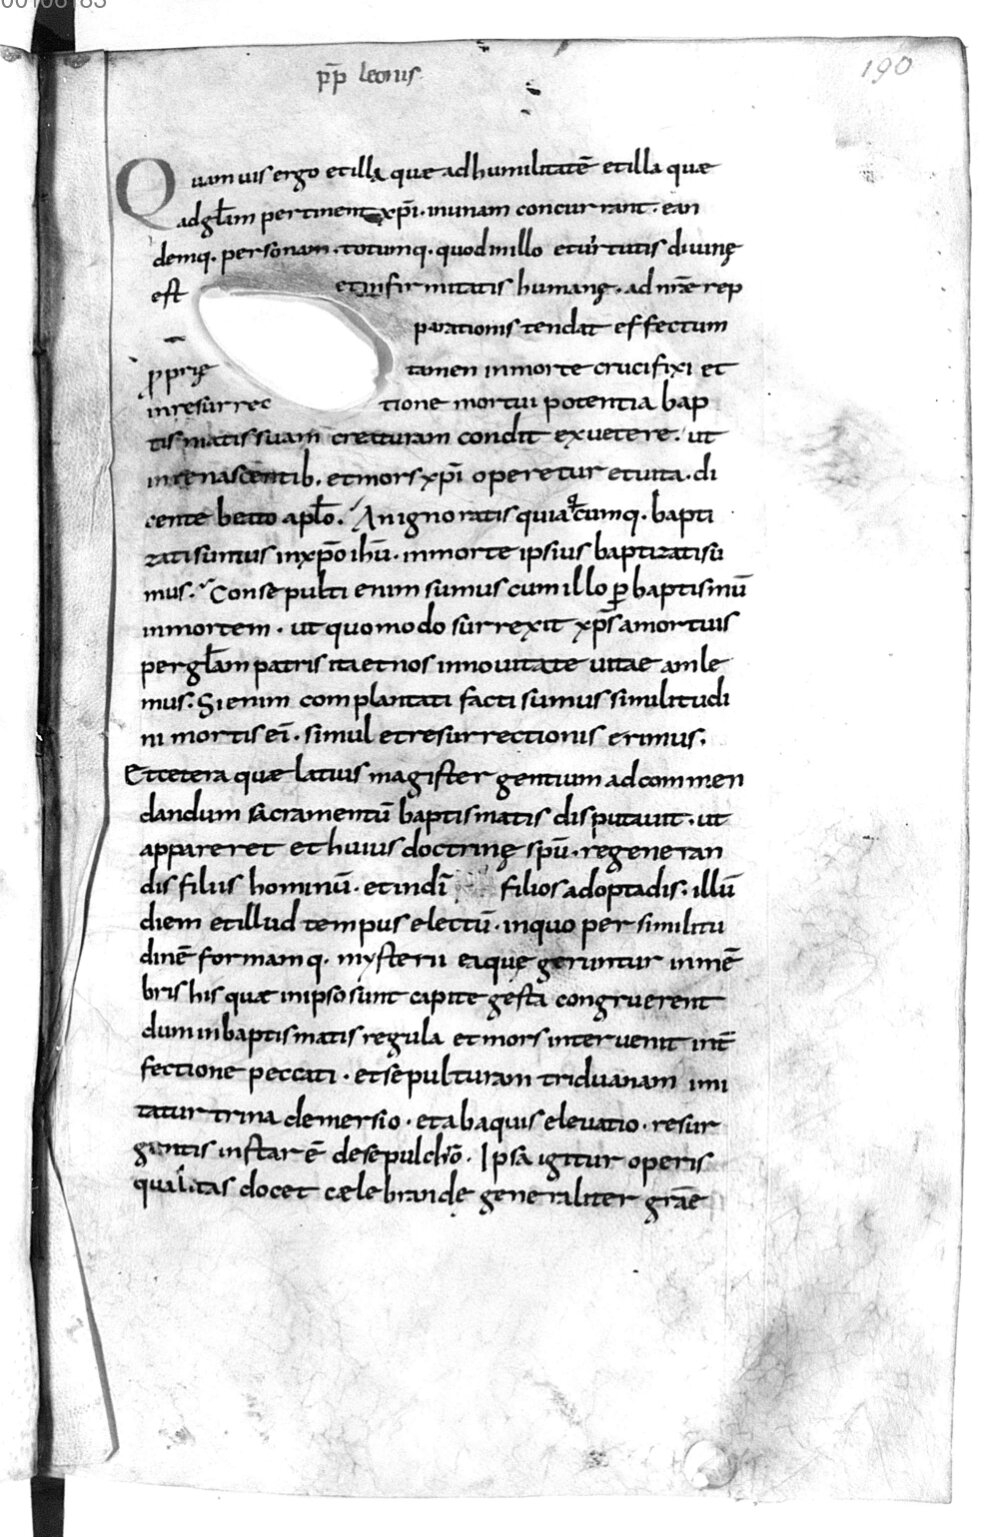 00106183
p̄p̄ leonis
190
Quamuis ergo et illa quæ ad humilitatē et illa quæ
ad gl̄am pertinent xp̄i. in unam concurrant. ean
demq. personam. totumq. quod in illo et uirtutis diuinę
est et infirmitatis humanę. ad nr̄ae rep
parationis tendat effectum
p̱prię tamen in morte crucifixi et
in resurrec tione mortui potentia bap
tismatis suam creaturam condit ex uetere. ut
in renascentib. et mors xp̄i operetur et uita. di
cente beato apl̄o. An ignoratis quia qͥcumq. bapti
zati sumus in xp̄o ihū. in morte ipsius baptizati sū
mus. Consepulti enim sumus cum illo ꝑ baptismū
in mortem. ut quomodo surrexit xp̄s a mortuis
per gl̄am patris ita et nos in nouitate uitae amle
mus. Si enim complantati facti sumus similitudi
ni mortis eī. simul et resurrectionis erimus.
Et cetera quæ latius magister gentium ad commen
dandum sacramentū baptismatis disputauit. ut
appareret ex huius doctrinę spū. regeneran
dis filiis hominū. et in dī filios adoptadis. illū
diem et illud tempus electū. in quo per similitu
dinē formamq. mysterii ea quę geruntur in mē
bris his quæ in ipso sunt capite gesta congruerent
dum in baptismatis regula et mors interuenit int̄
fectione peccati. et sepulturam triduanam imi
tatur trina demersio. et ab aquis eleuatio. resur
gentis instar ē de sepulchrō. Ipsa igitur operis
qualitas docet cælebrandę generaliter grāe